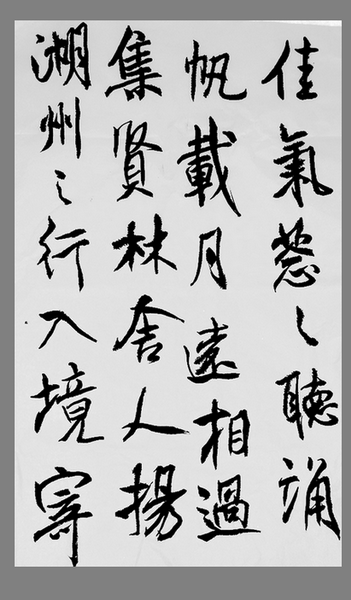 湖州之行入境寄
集賢林舍人揚
帆載月遠相過
佳氣葱〻聽誦